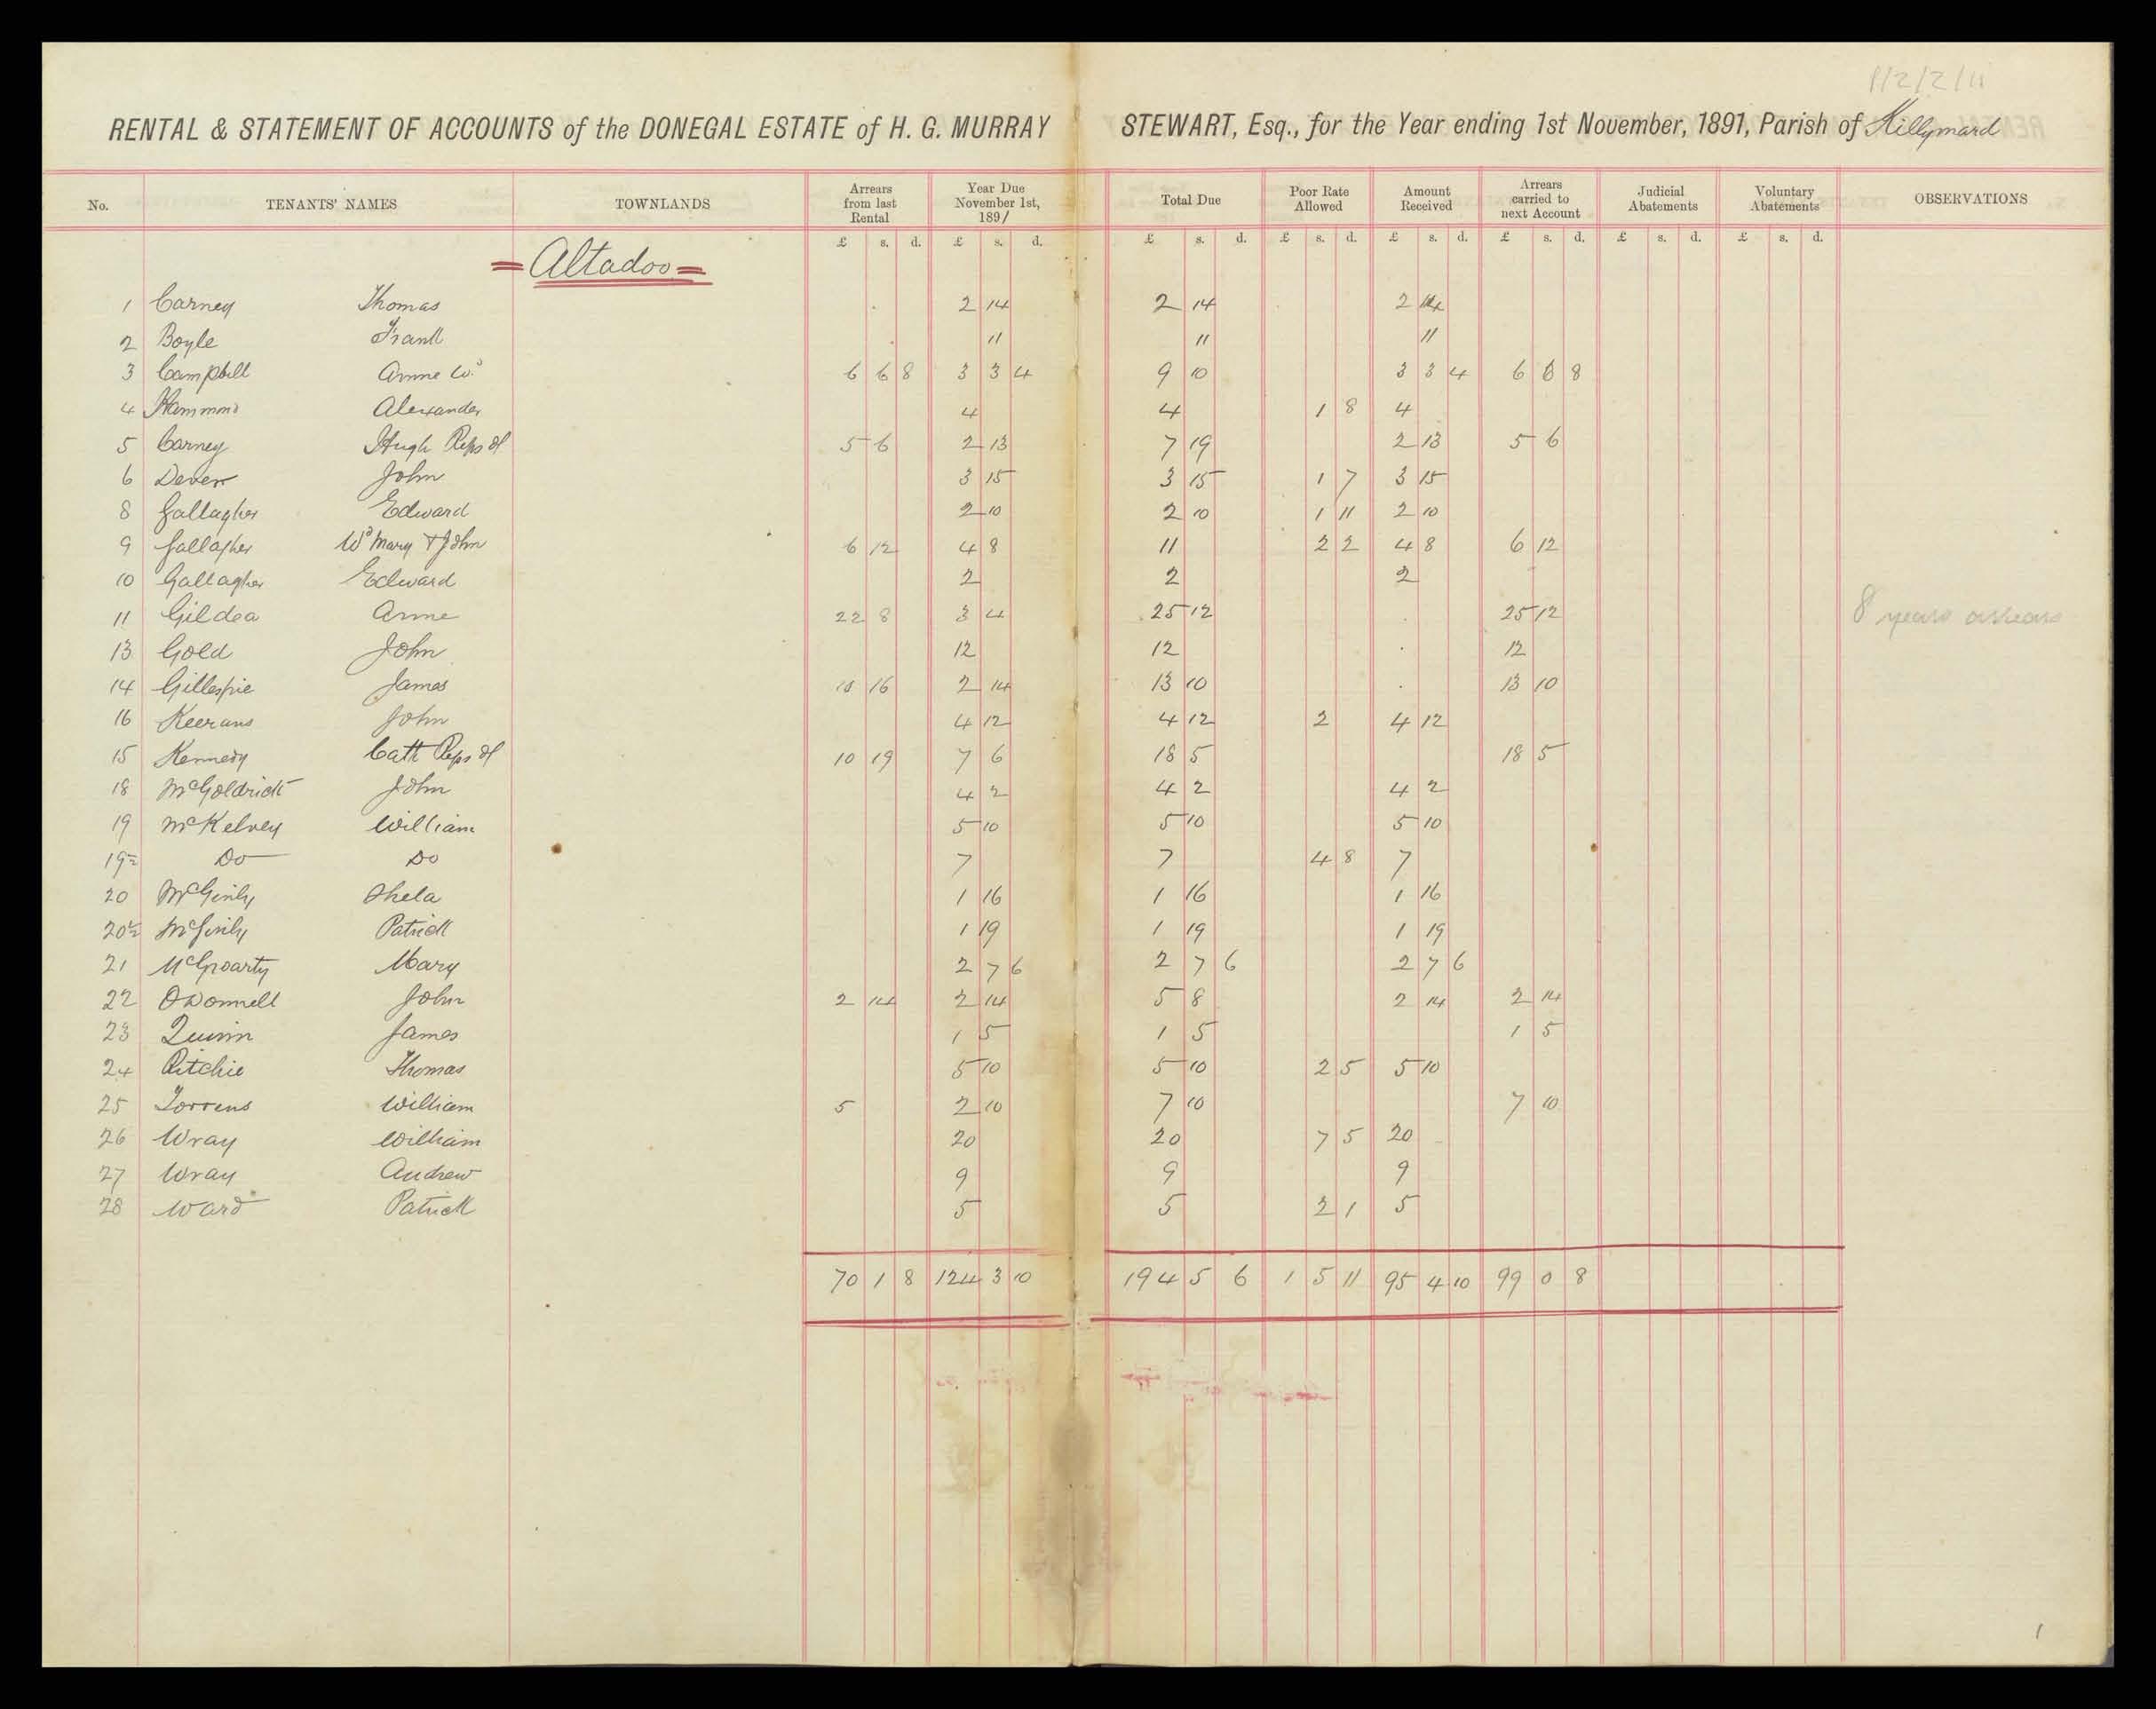 1/2/2/11
RENTAL & STATEMENT OF ACCOUNTS of the DONEGAL ESTATE of H. G. MURRAY STEWART, Esq., for the Year ending 1st November, 1891, Parish of Killymard
No. TENANTS' NAMES TOWNLANDS Arrears from last Rental Year Due November 1st, 1891 Total Due Poor Rate Allowed Amount Received Arrears carried to next Account Judicial Abatements Voluntary Abatements OBSERVATIONS
£ s. d. £ s. d. £ s. d. £ s. d. £ s. d. £ s. d. £ s. d. £ s. d.
Altadoo
1 Carney Thomas 2 14 2 14 2 14
2 Boyle Frank 11 11 11
3 Campbell Anne Wd 6 6 8 3 3 4 9 10 3 3 4 6 6 8
4 Hammond Alexander 4 4 1 8 4
5 Carney Hugh Reps of 5 6 2 13 7 19 2 13 5 6
6 Dever John 3 15 3 15 1 7 3 15
8 Gallagher Edward 2 10 2 10 1 11 2 10
9 Gallagher Wd Mary & John 6 12 4 8 11 2 2 4 8 6 12
10 Gallagher Edward 2 2 2
11 Gildea Anne 22 8 3 4 25 12 25 12 8 years arrears
13 Gold John 12 12 12
14 Gillespie James 10 16 2 14 13 10 13 10
16 Keerans John 4 12 4 12 2 4 12
15 Kennedy Cath Reps of 10 19 7 6 18 5 18 5
18 McGoldrick John 4 2 4 2 4 2
19 McKelvey William 5 10 5 10 5 10
19½ Do Do 7 7 4 8 7
20 McGinly Shela 1 16 1 16 1 16
20½ McGinly Patrick 1 19 1 19 1 19
21 McGroarty Mary 2 7 6 2 7 6 2 7 6
22 O'Donnell John 2 14 2 14 5 8 2 14 2 14
23 Quinn James 1 5 1 5 1 5
24 Ritchie Thomas 5 10 5 10 2 5 5 10
25 Torrens William 5 2 10 7 10 7 10
26 Wray William 20 20 7 5 20
27 Wray Andrew 9 9 9
28 Ward Patrick 5 5 2 1 5
70 1 8 124 3 10 194 5 6 1 5 11 95 4 10 99 0 8
1